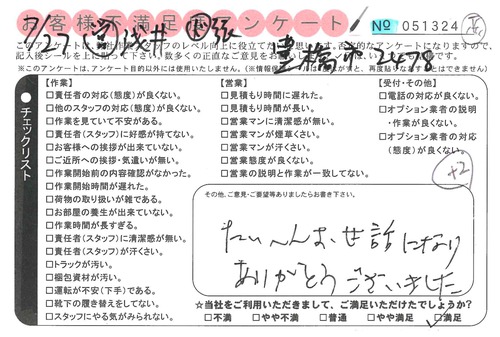 お客様不満足度アンケート
№ 051324
7/27 営浅井
豊橋市2478
※このアンケートは、アンケート目的以外には使用いたしません。
チェックリスト
【作業】
□責任者の対応(態度)が良くない。
□他のスタッフの対応(態度)が良くない。
□作業を見ていて不安がある。
□責任者(スタッフ)に好感が持てない。
□お客様への挨拶が出来ていない。
□ご近所への挨拶・気遣いが無い。
□作業開始前の内容確認がなかった。
□作業開始時間が遅れた。
□荷物の取り扱いが雑である。
□お部屋の養生が出来ていない。
□作業時間が長すぎる。
□責任者(スタッフ)に清潔感が無い。
□責任者(スタッフ)が汗くさい。
□トラックが汚い。
□梱包資材が汚い。
□運転が不安(下手)である。
□靴下の履き替えをしてない。
□スタッフにやる気がみられない。
【営業】
□見積もり時間に遅れた。
□見積もり時間が長い。
□営業マンに清潔感が無い。
□営業マンが煙草くさい。
□営業マンが汗くさい。
□営業態度が良くない。
□営業の説明と作業が一致してない。
【受付・その他】
□電話の対応が良くない。
□オプション業者の説明
・作業が良くない。
□オプション業者の対応
(態度)が良くない。
+2
その他、ご意見・ご要望等ありましたらお書き下さい。
たいへんお世話になり
ありがとうございました
☆当社をご利用いただきまして、ご満足いただけたでしょうか?
□不満 □やや不満 □普通 □やや満足 □満足